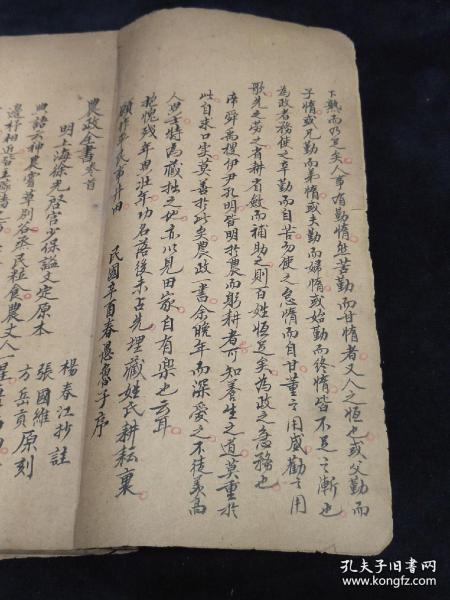 下熟而乃足矣人事有勤惰然苦勤而甘惰者又人之恒也或父勤而
子惰或兄勤而弟惰或夫勤而婦惰或始勤而終惰皆不足之漸也
為政者務使之辛勤而自苦勿使之怠惰而自甘董之用威勸之用
歌先之勞之省耕省斂而補助之則百姓恒足矣為政之急務也
虞舜禹稷伊尹孔明皆明於農而躬耕者可知養生之道莫重於
此自求口實莫善於此矣農政一書余晚年而深愛之不徒美高
人畢士特為藏拙之地亦以見田家自有樂也云耳
抱愧殘年思壯年功名落後未占先埋藏姓氏耕耘裏
願作平民市井田
民國辛酉春愚魯子序
農政全書卷首
明上海徐光啓官少保謚文定原本
楊春江抄註
張國維
方岳貢 原刻
典語云神農嘗草別谷烝民粒食農丈人一星